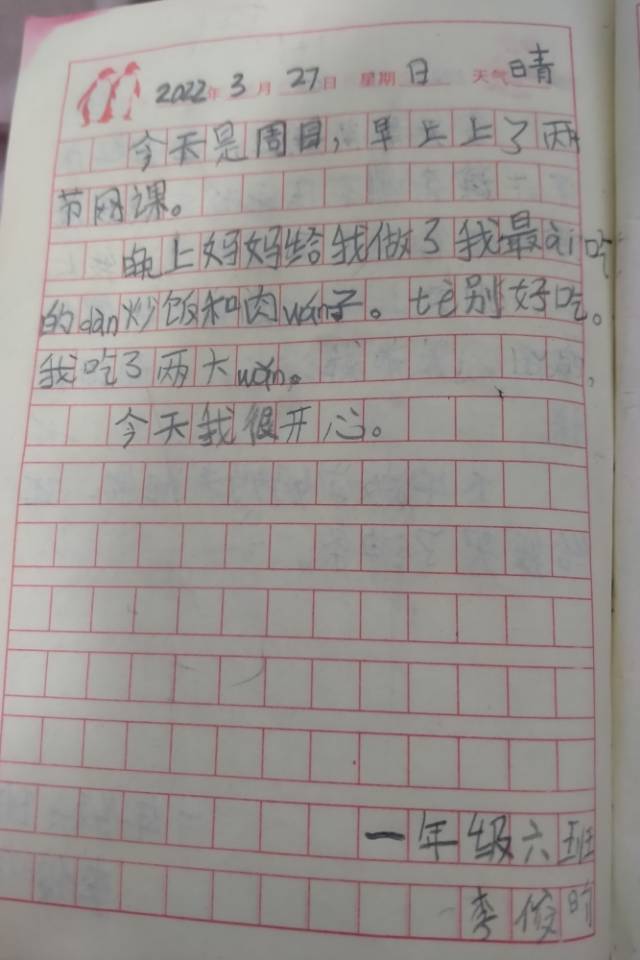 2022年3月27日 星期日 天气晴
今天是周日，早上上了两
节网课。
晚上妈妈给我做了我最ài吃
的dàn炒饭和肉wán子。tè别好吃。
我吃了两大wǎn。
今天我很开心。
一年级六班
李俊昀